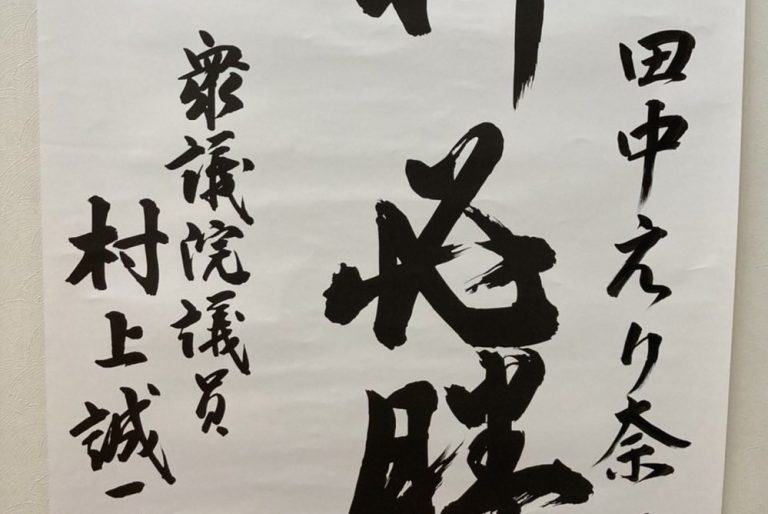 田中えり奈
必勝
衆議院議員
村上誠一